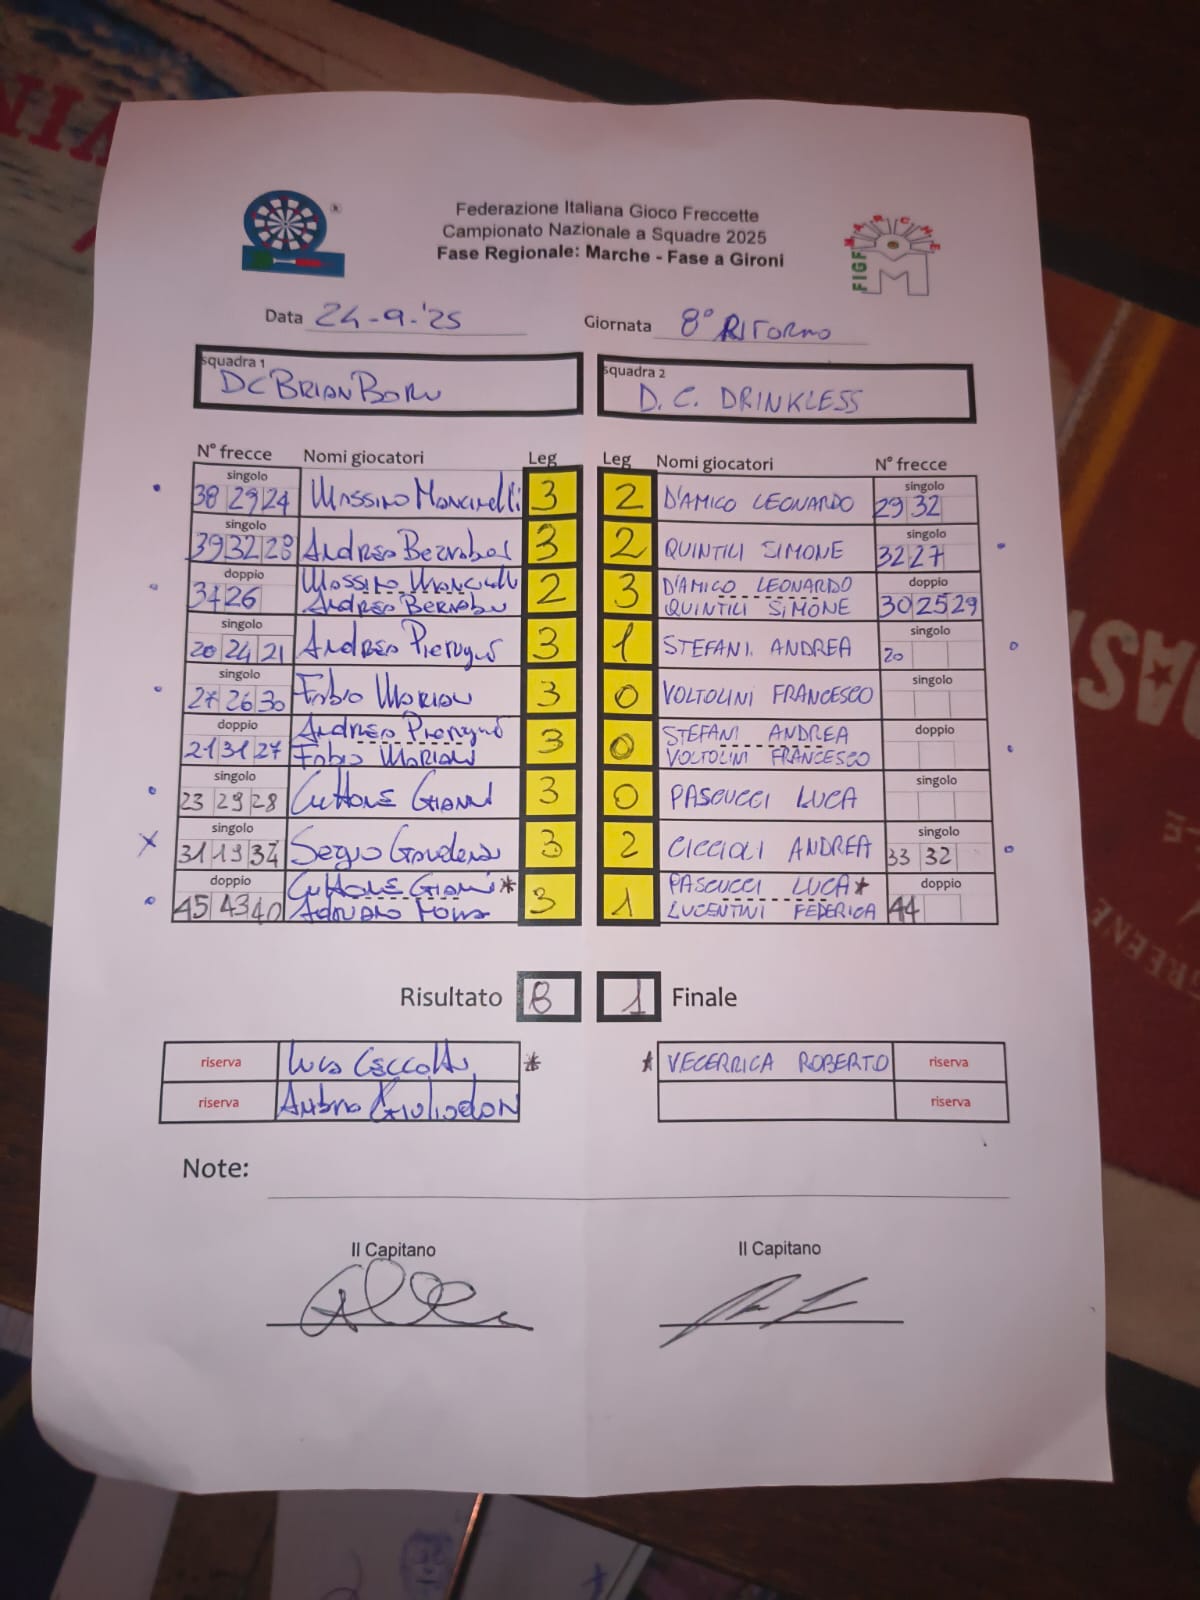 Federazione Italiana Gioco Freccette
Campionato Nazionale a Squadre 2025
Fase Regionale: Marche - Fase a Gironi
MARCHE
FIGF M
Data 24-9-'25 Giornata 8° RITORNO
squadra 1 squadra 2
DC BRIAN BORU D.C. DRINKLESS
N° frecce Nomi giocatori Leg Leg Nomi giocatori N° frecce
singolo singolo
38 29 24 Massimo Mancinelli 3 2 D'AMICO LEONARDO 29 32
singolo singolo
39 32 28 Andrea Bernabei 3 2 QUINTILI SIMONE 32 27
doppio Massimo Mancinelli D'AMICO LEONARDO doppio
34 26 Andrea Bernabei 2 3 QUINTILI SIMONE 30 25 29
singolo singolo
20 24 21 Andrea Pierugné 3 1 STEFANI ANDREA 20
singolo singolo
27 26 30 Fabio Mariani 3 0 VOLTOLINI FRANCESCO
doppio Andrea Pierugné STEFANI ANDREA doppio
21 31 27 Fabio Mariani 3 0 VOLTOLINI FRANCESCO
singolo singolo
23 29 28 Cuttone Gianni 3 0 PASCUCCI LUCA
singolo singolo
31 19 34 Sergio 3 2 CICCIOLI ANDREA 33 32
doppio Cuttone Gianni* PASCUCCI LUCA* doppio
45 43 40 Adriano 3 1 LUCENTINI FEDERICA 44
Risultato 8 1 Finale
riserva Luca Ceccotti * * VECERRICA ROBERTO riserva
riserva riserva
Note:
Il Capitano Il Capitano